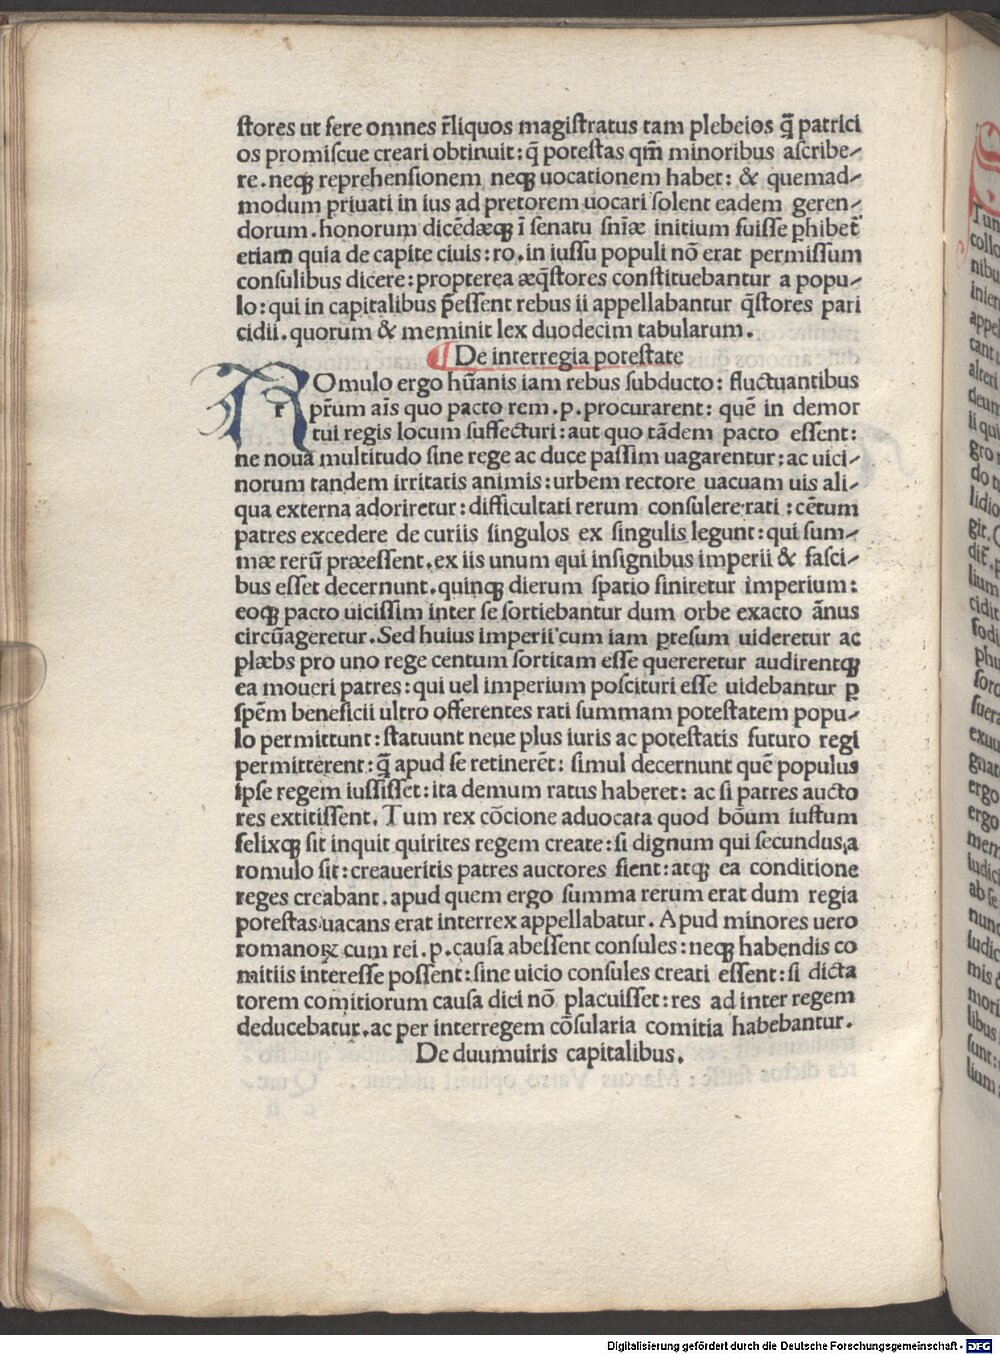 ſtores ut fere omnes r̃liquos magiſtratus tam plebeios q̃ patrici
os promiſcue creari obtinuit: q̃ poteſtas qm̃ minoribus aſcribe-
re. neqꝫ reprehenſionem neqꝫ uocationem habet: & quemad-
modum priuati in ius ad pretorem uocari ſolent eadem geren-
dorum. honorum dicēdæqꝫ ī ſenatu ſnīæ initium fuiſſe ꝑhibet̃
etiam quia de capite ciuis: ro. in iuſſu populi nō erat permiſſum
conſulibus dicere: propterea æq̃ſtores conſtituebantur a popu-
lo: qui in capitalibus p̃eſſent rebus ii appellabantur q̃ſtores pari
cidii. quorum & meminit lex duodecim tabularum.
De interregia poteſtate
ROmulo ergo hūanis iam rebus ſubducto: fluctuantibus
pr̃um aīs quo pacto rem. p. procurarent: quē in demor
tui regis locum ſuffecturi: aut quo tādem pacto eſſent:
ne noua multitudo ſine rege ac duce paſſim uagarentur: ac uici-
norum tandem irritatis animis: urbem rectore uacuam uis ali-
qua externa adoriretur: difficultati rerum conſulere rati: cētum
patres excedere de curiis ſingulos ex ſingulis legunt: qui ſum-
mæ rerū præeſſent. ex iis unum qui inſignibus imperii & faſci-
bus eſſet decernunt. quinqꝫ dierum ſpatio finiretur imperium:
eoqꝫ pacto uiciſſim inter ſe ſortiebantur dum orbe exacto ānus
circūageretur. Sed huius imperii cum iam preſum uideretur ac
plæbs pro uno rege centum ſortitam eſſe quereretur audirentqꝫ
ea moueri patres: qui uel imperium poſcituri eſſe uidebantur ꝑ
ſpēm beneficii ultro offerentes rati ſummam poteſtatem popu-
lo permittunt: ſtatuunt neue plus iuris ac poteſtatis futuro regi
permitterent: q̃ apud ſe retinerēt: ſimul decernunt quē populus
ipſe regem iuſſiſſet: ita demum ratus haberet: ac ſi patres aucto
res extitiſſent. Tum rex cōcione aduocata quod bōum iuſtum
felixqꝫ ſit inquit quirites regem create: ſi dignum qui ſecundus a
romulo ſit: creaueritis patres auctores fient: atqꝫ ea conditione
reges creabant. apud quem ergo ſumma rerum erat dum regia
poteſtas uacans erat interrex appellabatur. Apud minores uero
romanoꝝ cum rei. p. cauſa abeſſent conſules: neqꝫ habendis co
mitiis intereſſe poſſent: ſine uicio conſules creati eſſent: ſi dicta
torem comitiorum cauſa dici nō placuiſſet: res ad inter regem
deducebatur. ac per interregem cōſularia comitia habebantur.
De duumuiris capitalibus.
Digitalisierung gefördert durch die Deutsche Forschungsgemeinschaft - DFG